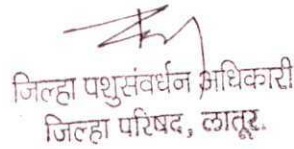 जिल्हा पशुसंवर्धन अधिकारी
जिल्हा परिषद, लातूर.